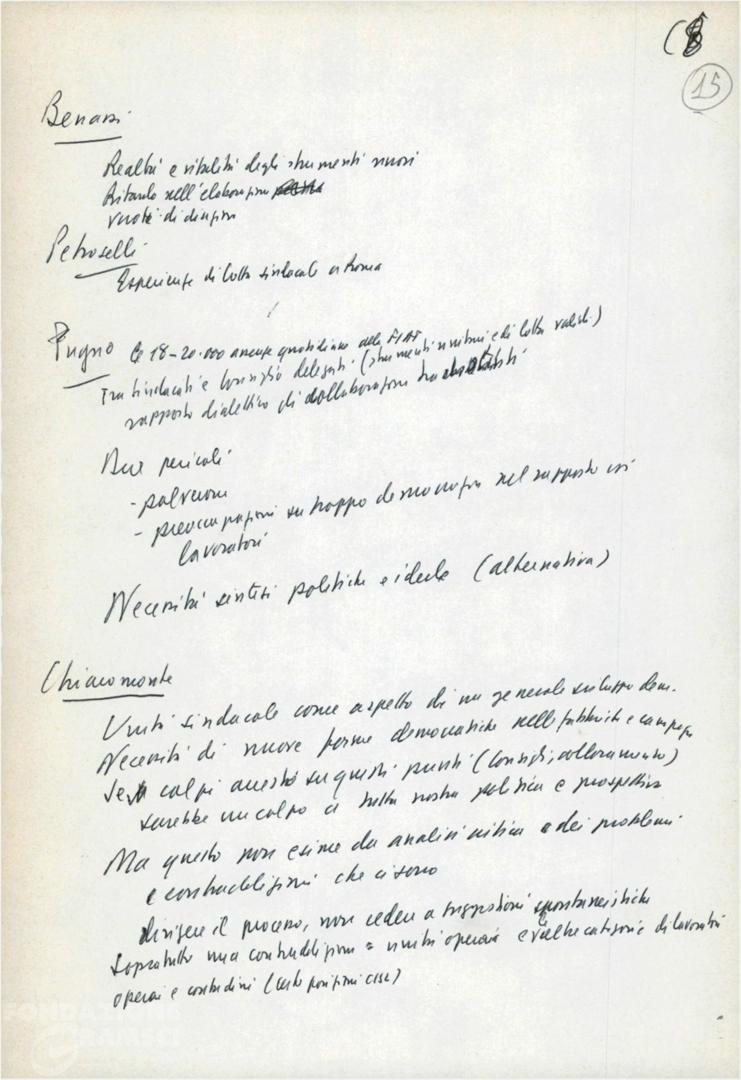 (8
15
Benassi
Realtà e vitalità degli strumenti nuovi
Ritardo nell'elaborazione
vuoti di direzione
Petroselli
Esperienze di lotta sindacale a Roma
Pugno le 18-20.000 assenze quotidiane alla FIAT
Tra sindacati e consiglio delegati (strumenti unitari e di lotta validi)
rapporto dialettico di collaborazione tra
Due pericoli
- polverone
- preoccupazioni su troppo democrazia nel rapporto coi
lavoratori
Necessità sintesi politiche e ideale (alternativa)
Chiaromonte
Unità sindacale come aspetto di un generale sviluppo dem.
Necessità di nuove forme democratiche nelle fabbriche e campagne
Se colpi su questi punti (Consigli, collocamento)
sarebbe un colpo a tutta nostra politica e prospettiva
Ma questo non esime da analisi critica dei problemi
e contraddizioni che ci sono
dirigere il processo, non cedere a suggestioni spontaneistiche
Sopratutto una contraddizione = unità operaia e altre categorie di lavoratori
operai e contadini (certe posizioni CISL)
FONDAZIONE
GRAMSCI